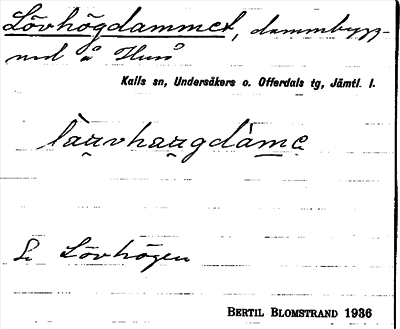 Lövhögdammet, dammbygg-
nad å Huså
Kalls sn, Undersåkers o. Offerdals tg, Jämtl. l.
Se Lövhögen
BERTIL BLOMSTRAND 1936